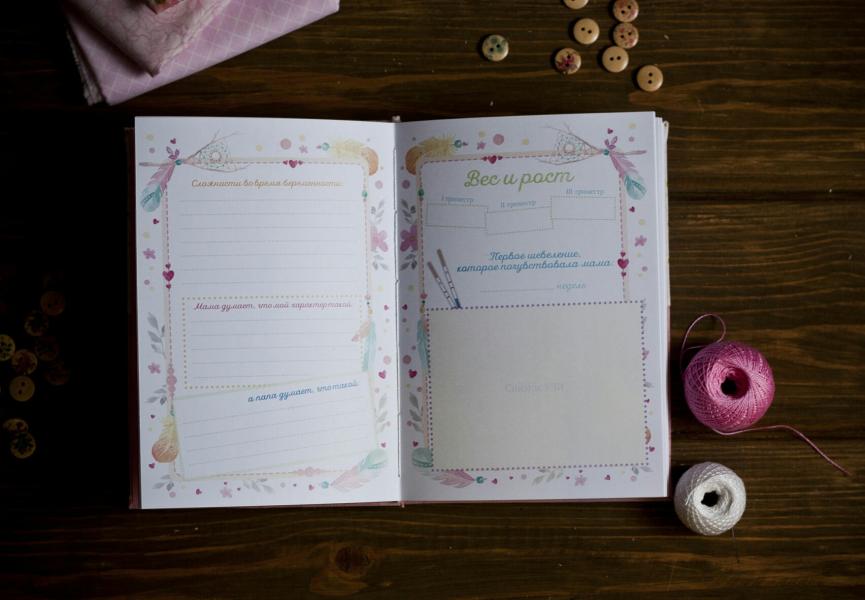 Сложности во время беременности:
Мама думает, что мой характер такой:
а папа думает, что такой:
Вес и рост
I триместр
II триместр
III триместр
Первое шевеление,
которое почувствовала мама:
неделя